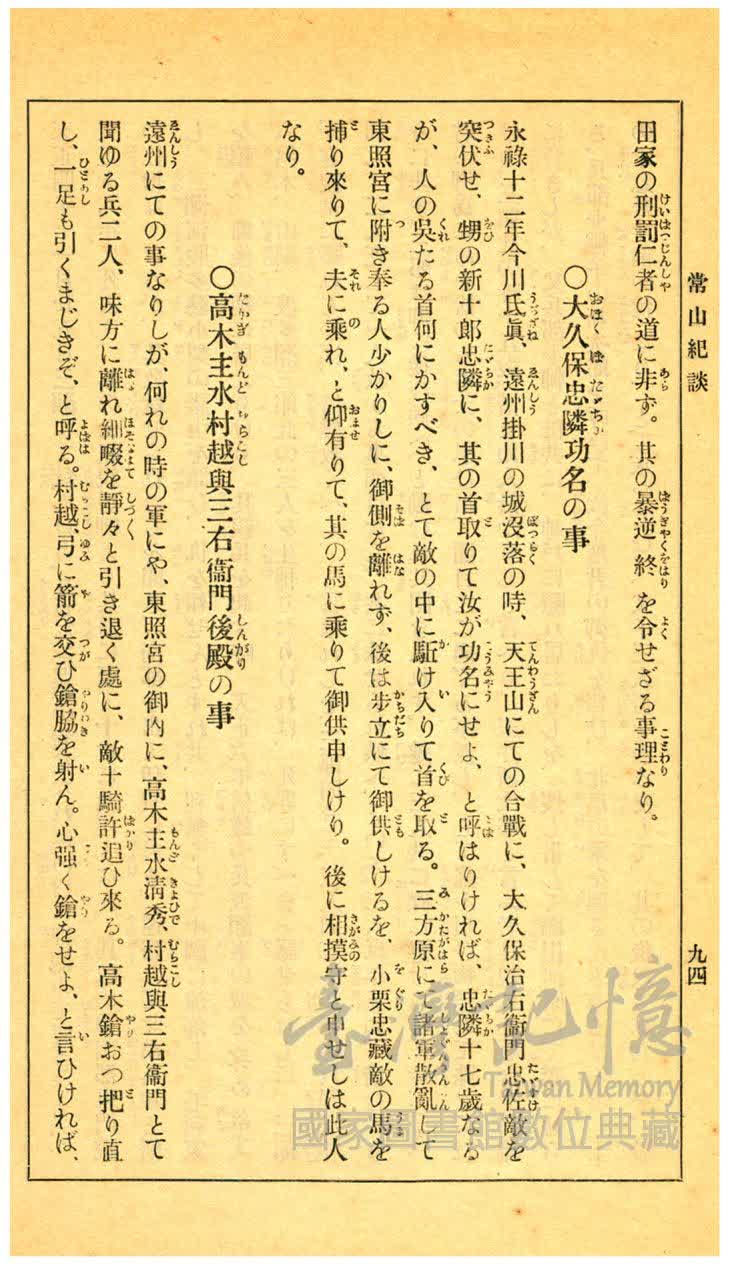 常山紀談
九四
田家の刑罰仁者の道に非ず。其の暴逆終を令せざる事理なり。
〇大久保忠隣功名の事
永祿十二年今川氏眞、遠州掛川の城沒落の時、天王山にての合戰に、大久保治右衞門忠佐敵を
突伏せ、甥の新十郎忠隣に、其の首取りて汝が功名にせよ、と呼はりければ、忠隣十七歲なる
が、人の吳たる首何にかすべき、とて敵の中に駈け入りて首を取る。三方原にて諸軍散亂して
東照宮に附き奉る人少かりしに、御側を離れず、後は步立にて御供しけるを、小栗忠藏敵の馬を
捕り來りて、夫に乘れ、と仰有りて、其の馬に乘りて御供申しけり。後に相摸守と申せしは此人
なり。
〇高木主水村越與三右衞門後殿の事
遠州にての事なりしが、何れの時の軍にや、東照宮の御內に、高木主水淸秀、村越與三右衞門とて
聞ゆる兵二人、味方に離れ細畷を靜々と引き退く處に、敵十騎許追ひ來る。高木鎗おつ把り直
し、一足も引くまじきぞ、と呼る。村越、弓に箭を交ひ鎗脇を射ん。心强く鎗をせよ、と言ひければ、
臺灣記憶
Taiwan Memory
國家圖書館數位典藏